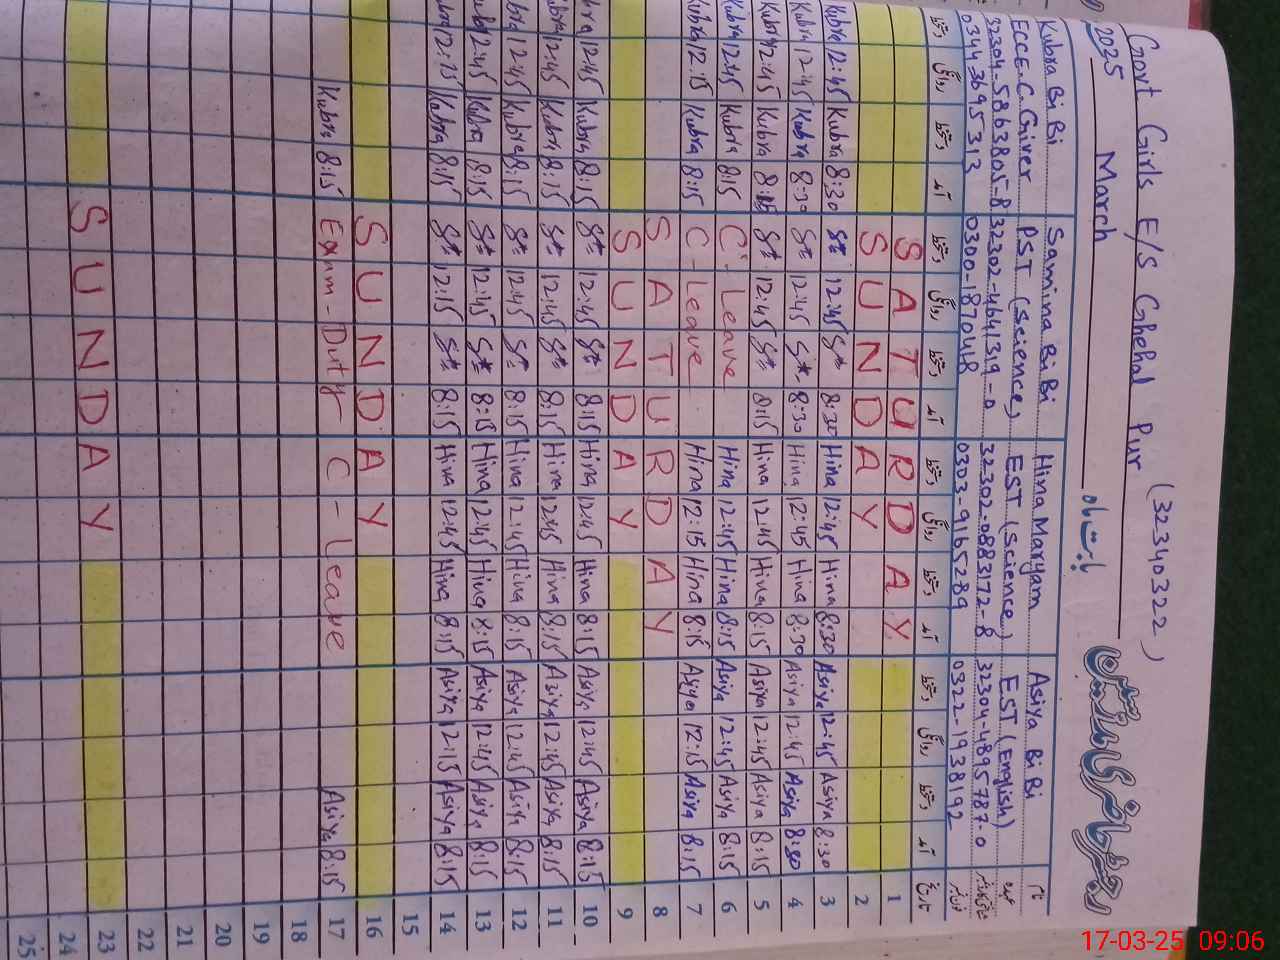 Govt Girls E/S Ghehal Pur (32340322)
2025 March بابت ماہ
نام Asiya Bi Bi Hina Maryam Samina Bi Bi Kubra Bi Bi
عہدہ EST (English) EST (Science) PST (Science) ECCE. C. Giver
32304-4895787-0 32302-0883172-8 32302-4641319-0 32304-5863805-8
0322-1938192 0303-9165289 0300-1870418 0344 3695313
تاریخ آمد دستخط روانگی دستخط آمد دستخط روانگی دستخط آمد دستخط روانگی دستخط آمد دستخط روانگی دستخط
1 SATURDAY
2 SUNDAY
3 8:30 Asiya 12:45 Asiya 8:30 Hina 12:45 Hina 8:30 12:45 8:30 Kubra 12:45 Kubra
4 8:30 Asiya 12:45 Asiya 8:30 Hina 12:45 Hina 8:30 12:45 8:30 Kubra 12:45 Kubra
5 8:15 Asiya 12:45 Asiya 8:15 Hina 12:45 Hina 8:15 12:45 8:15 Kubra 12:45 Kubra
6 8:15 Asiya 12:45 Asiya 8:15 Hina 12:45 Hina C-Leave 8:15 Kubra 12:45 Kubra
7 8:15 Asiya 12:15 Asiya 8:15 Hina 12:15 Hina C-Leave 8:15 Kubra 12:15 Kubra
8 SATURDAY
9 SUNDAY
10 8:15 Asiya 12:45 Asiya 8:15 Hina 12:45 Hina 8:15 12:45 8:15 Kubra 12:45 Kubra
11 8:15 Asiya 12:45 Asiya 8:15 Hina 12:45 Hina 8:15 12:45 8:15 Kubra 12:45 Kubra
12 8:15 Asiya 12:45 Asiya 8:15 Hina 12:45 Hina 8:15 12:45 8:15 Kubra 12:45 Kubra
13 8:15 Asiya 12:45 Asiya 8:15 Hina 12:45 Hina 8:15 12:45 8:15 Kubra 12:45 Kubra
14 8:15 Asiya 12:15 Asiya 8:15 Hina 12:45 Hina 8:15 12:15 8:15 Kubra 12:15 Kubra
15
16 SUNDAY
17 8:15 Asiya C-Leave Exam-Duty 8:15 Kubra
18
19
20
21
22
23 SUNDAY
24
25
17-03-25 09:06